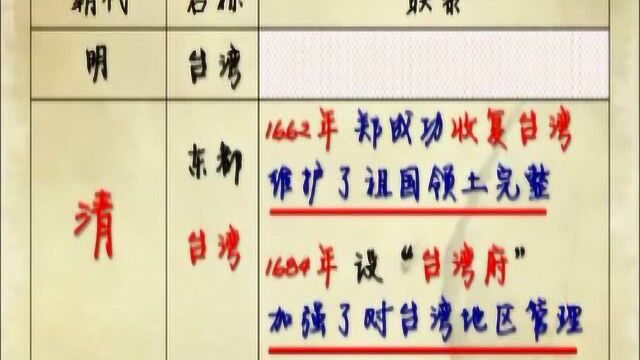 朝代 名称 联系
明 台湾
清 东都 1662年 郑成功收复台湾
维护了祖国领土完整
台湾 1684年 设“台湾府”
加强了对台湾地区管理